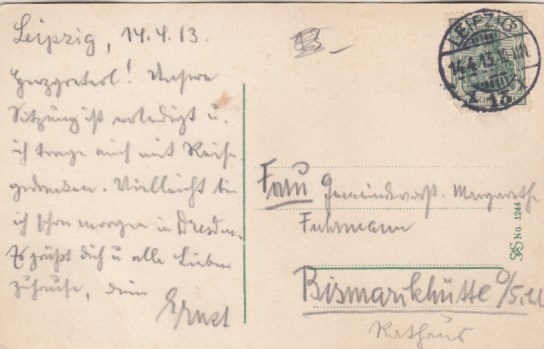 Leipzig, 14.4.13.
Herzgreterl! Unsere
Sitzung ist erledigt u.
ich trage mich mit Reise-
gedanken. Vielleicht bin
ich schon morgen in Dresden.
Es grüßt dich u alle Lieben
zuhause, dein
Ernst
LEIPZIG
14.4.13.
Frau Gemeindevorst. Margarethe
Fuhrmann
Bismarkhütte O/S.
Rathaus
No. 1244